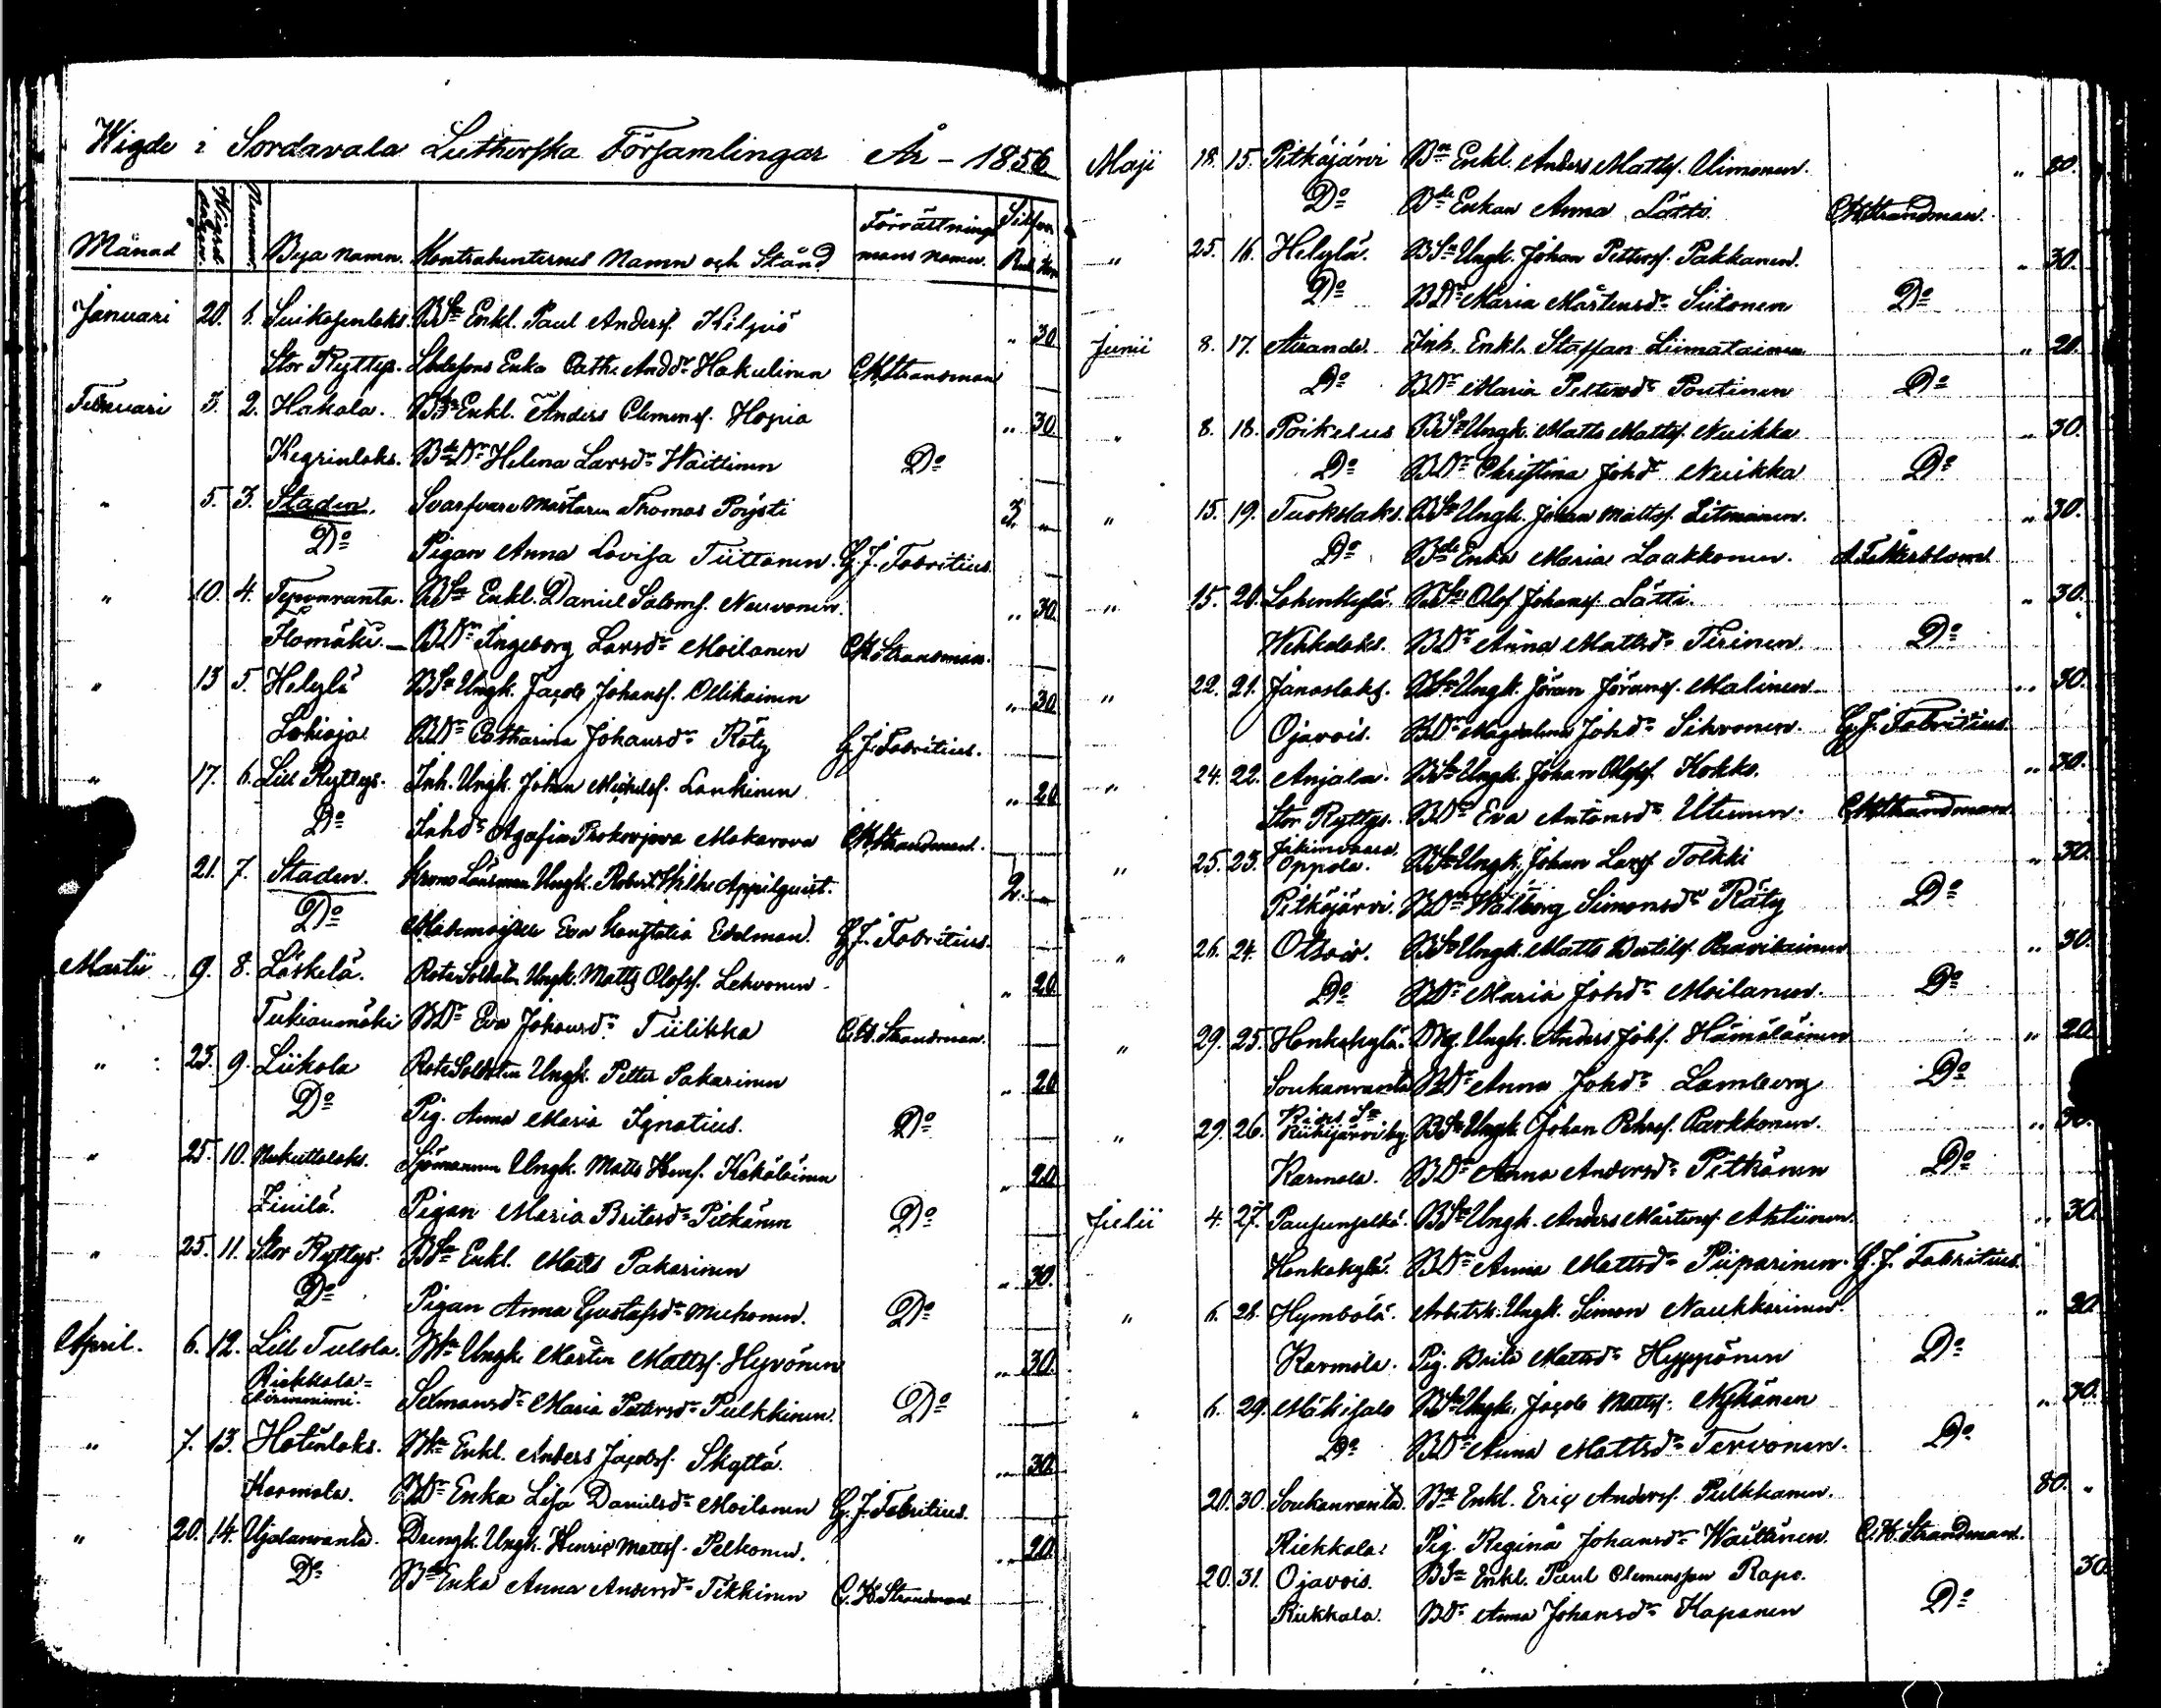 Wigde i Sordavala Lutherska Församlingar År - 1856
Månad Wigsel dagen. Nummer. Bya namn. Kontrahenternes Namn och Stånd Förrättnings mans namn. Silfver Rub. Kop.
Januari 20. 1. Suikasenlaks. BSn Enkl. Paul Andersf. Hilpiö „ 30
Stor Ryttys. Enka Cath. Andd:r Hakulinen C.H. Strandman
Februari 3. 2. Hakala. Enkl. Anders Clemensf. Hopia „ 30
Kegrinlaks. Helena Larsd:r Waittinen D:o
„ 5. 3. Staden. Svarfvare Mästaren Thomas Pöysti 3. „
D:o Pigan Anna Lovisa Tiittanen. G. J. Fabritius.
„ 10. 4. Teponranta. BSn Enkl. Daniel Salomsf. Neuvonen. „ 30.
Ilomäki. — BD:r Ingeborg Larsd:r Moilanen C.H. Strandman.
„ 13 5. Helylä BSn Ungk. Jacob Johansf. Ollikainen „ 30
Lohioja BD:r Catharina Johansd:r Räty G. J. Fabritius.
„ 17. 6. Lill Ryttys. Inh. Ungk. Johan Michelsf. Lankinen „ 20
D:o Inhd:r Agafia Prokovjeva Makarova C.H. Strandman.
21. 7. Staden. Krono Länsman Ungk. Robert Wilh. Appelquist. 2. „
D:o Mademoiselle Eva Constatia Edelman. G. J. Fabritius.
Martii 9. 8. Läskelä. Rote Soldaten Ungk. Matts Olofsf. Lehvonen „ 20
Tukianmäki BD:r Eva Johansd:r Tiilikka C.H. Strandman.
„ 23. 9. Liikola Rote Soldaten Ungk. Petter Pakarinen „ 20
D:o Pig. Anna Maria Ignatius. D:o
„ 25. 10. Sjömannen Ungk. Matts Kekäläinen „ 20
Pigan Maria Pitkänen D:o
„ 25. 11. Stor Ryttys. BSn Enkl. Matts Pakarinen „ 30.
D:o Pigan Anna Gustafsd:r Muhonen. D:o
April. 6. 12. Lill Tulola. Bn Ungk. Mårten Mattsf. Hyvönen „ 30.
Riekkala= Sexmansd:r Maria Pettersd:r Pulkkinen. D:o
Nirinniemi.
„ 7. 13. Hotinlaks. Bn Enkl. Anders Jacobsf. Skyttä. „ 30.
Karmala. BD:r Enka Lisa Danielsd:r Moilanen G. J. Fabritius.
„ 20. 14. Ujalanranta. Drengk. Ungk. Henric Mattsf. Pelkonen. „ 20.
D:o Enka Anna Andersd:r Tikkinen C. H. Strandman
Maji 18. 15. Pitkäjärvi Bn Enkl. Anders Mattsf. Uimonen. „ 80.
D:o Enkan Anna Lätti. C.H. Strandman.
„ 25. 16. Helylä. BSn Ungk. Johan Pettersf. Pakkanen. „ 30.
D:o BD:r Maria Mårtensd:r Siitonen D:o
Junii 8. 17. Inh. Enkl. Staffan Liimatainen „ 20.
D:o BD:r Maria Pettersd:r Poutinen D:o
„ 8. 18. Poikelus BSn Ungk. Matts Mattsf. Nuikka „ 30.
D:o BD:r Christina Johd:r Nuikka D:o
„ 15. 19. Tuokslaks. BSn Ungk. Johan Mattsf. Litmanen. „ 30.
D:o Enka Maria Laakkonen.
„ 15. 20. Lahenkylä. BSn Olof Johansf. Lätti. „ 30.
Wehkalaks. BD:r Anna Mattsd:r Tirinen. D:o
„ 22. 21. Janaslaks. BSn Ungk. Jöran Jöransf. Malinen „ 30.
Ojavois. BD:r Magdalena Johd:r Sihvonen. G. J. Fabritius.
„ 24. 22. Anjala. BSn Ungk. Johan Olofsf. Kokko. „ 30.
Stor Ryttys. BD:r Eva Antonsd:r Utunen. C.H. Strandman
Jakimvaara.
„ 25. 23. Oppola. BSn Ungk. Johan Larsf. Tolkki „ 30.
Pitkäjärvi. BD:r Walborg Simonsd:r Räty D:o
„ 26. 24. Otsois. BSn Ungk. Matts Bertilsf. Paavilainen „ 30.
D:o BD:r Maria Johd:r Moilanen. D:o
„ 29. 25. Honkakylä. Drg. Ungk. Anders Johsf. Hämäläinen „ 20.
Soukanranta BD:r Anna Johd:r Lamberg D:o
„ 29. 26. BSn Ungk. Johan Parkkonen. „ 30.
Karmala. BD:r Anna Andersd:r Pitkänen D:o
Julii 4. 27. Pausunselkä. BSn Ungk. Anders Mårtensf. Ahtiinen. „ 30.
Honkakylä. BD:r Anna Mattsd:r Piiparinen. G. J. Fabritius.
„ 6. 28. Hymbölä. Arbetsk. Ungk. Simon Naukkarinen. „ 20.
Karmala. Pig. Brita Mattsd:r Hyppönen D:o
„ 6. 29. Mäkisalo BSn Ungk. Jacob Mattsf. Nykänen „ 30.
D:o BD:r Anna Mattsd:r Tervonen. D:o
20. 30. Soukanranta. Bn Enkl. Eric Andersf. Pulkkanen. 80. „
Riekkala. Pig. Regina Johansd:r Wäittänen. C. H. Strandman.
20. 31. Ojavois. BSn Enkl. Paul Clemensson Rapo. 30
Riekkala. BD:r Anna Johansd:r Kaponen D:o